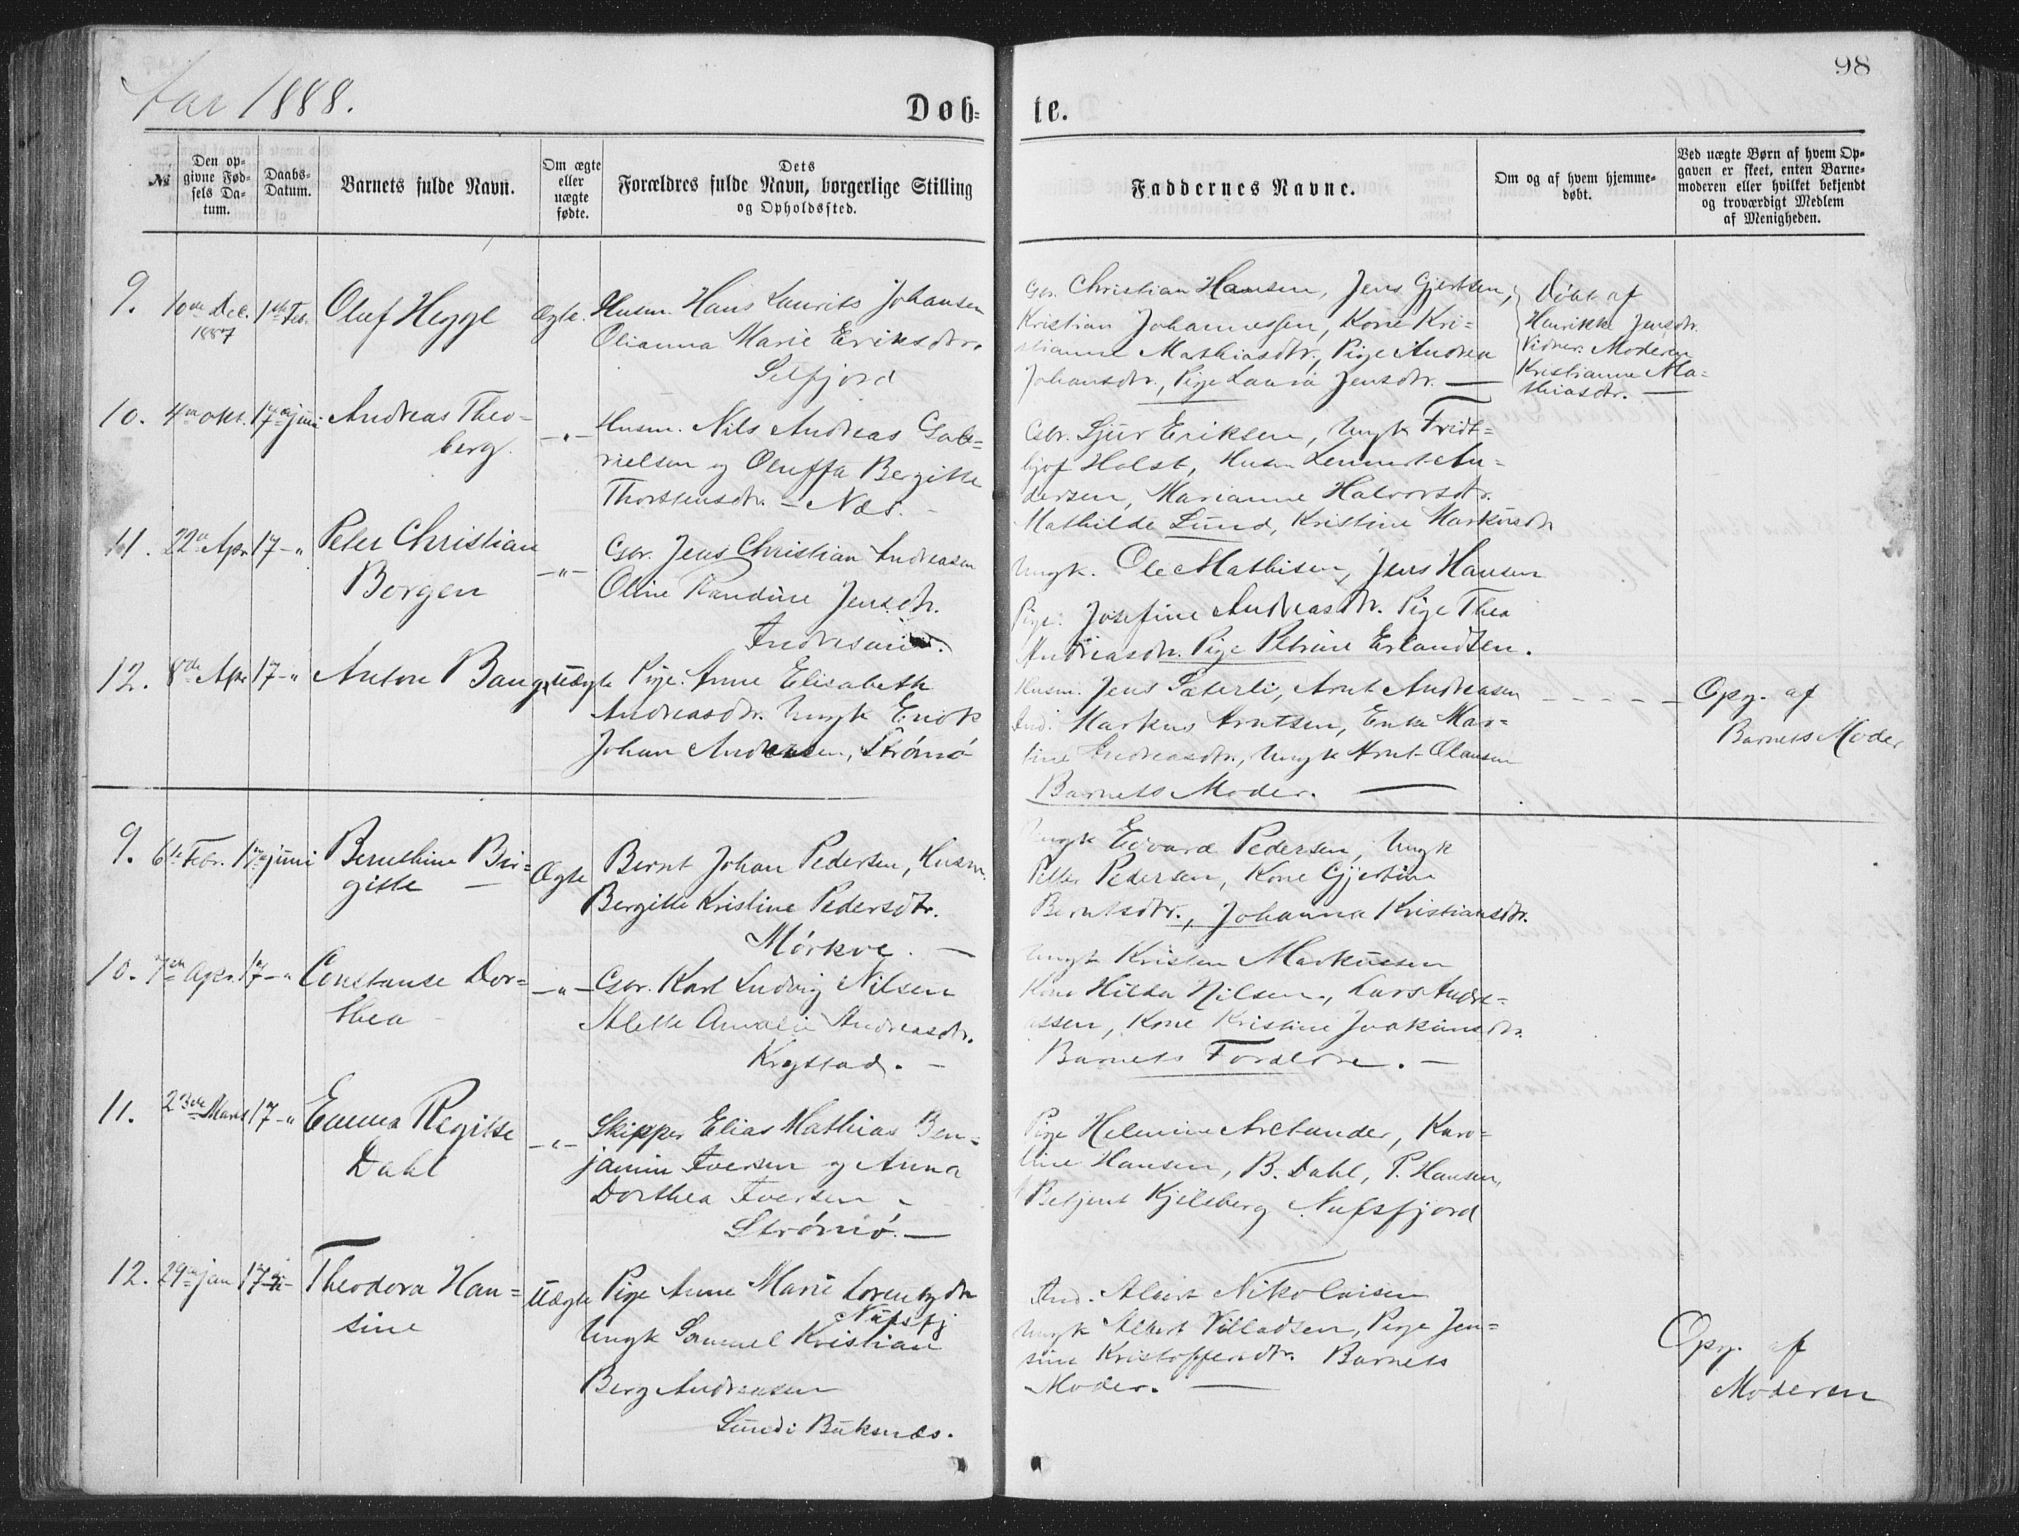 Aar 1888.
Døb-
te.
98
№
Den op-
givne Fød-
sels Da-
tum.
Daabs-
Datum.
Barnets fulde Navn.
Om ægte
eller
uægte
fødte.
Dets
Forældres fulde Navn, borgerlige Stilling
og Opholdssted.
Faddernes Navne.
Om og af hvem hjemme-
døbt.
Ved uægte Børn af hvem Op-
gaven er skeet, enten Barne-
moderen eller hvilket bekjendt
og troværdigt Medlem
af Menigheden.
9. 10de Dec. 1887 1ste Feb. Oluf Hegge Ægte. Husm. Hans Laurits Johansen
Olianna Marie Eriksdtr.
Selfjord
Gbr. Christian Hansen, Jens Gjertsen,
Kristian Johannessen, Kone Kri-
stianne Mathiasdtr., Pige Andrea
Johansdtr., Pige Laura Jensdtr. —
Døbt af
Henrikke Jensdtr.
Vidner. Moderen
Kristianne Ma-
thiasdtr. —
10. 4de Okt. 17de juni Andreas Theo-
berg. —"— Husm. Nils Andreas Gab-
rielsen og Oluffa Bergitte
Thorstensdtr. – Næs. –
Gbr. Sjur Eriksen, Ungk Fridt-
hjof Holst, Husm Lennert An-
dersen, Marianne Halvorsdtr.
Mathilde Lund, Kristine Markusdtr
11. 22de Apr 17-" Peter Christian
Borgen —"— Gbr. Jens Christian Andreasen
Oline Randine Jensdtr.
Ungk. Ole Mathisen, Jens Hansen
Pige. Josefine Andreasdtr. Pige Thea
Andreasdtr. Pige Petrine Erlandsen.
12. 8de Apr 17-" Anton Bang, Uægte Pige. Anne Elisabeth
Andreasdtr. Ungk Enok
Johan Andersen, Strømø
Husm. Jens Sæterli, Arnt Andreasen
Ind. Markus Arntsen, Enke Mar-
tine Andreasdtr., Ungk Arnt Olausen
Barnets Moder. —
Opg. af
Barnets Moder
9. 6te Febr. 17de juni Bernthine Bir-
gitte — Ægte Bernt Johan Pedersen, Husm.
Bergitte Kristine Pedersdtr.
Mørkve. —
Ungk Edvard Pedersen, Ungk
Petter Pedersen, Kone Gjertine
Berntsdtr., Johanna Kristiansdtr.
10. 7de Apr. 17-" Constanse Dor-
thea —"— Gbr. Karl Ludvig Nilsen
Alette Amalie Andreasdtr.
Krystad. —
Ungk Kristen Markussen
Kone Hilda Nilsen, Lars Andre-
assen, Kone Kristine Joakimsdtr.
Barnets Forældre. —
11. 23de Marts 17-" Emma Regitse
Dahl —"— Skipper Elias Mathias Ben-
jamin Iversen og Anna
Dorthea Iversen –
Strømø. —
Pige Helmine Arctander, Karo-
line Hansen, B. Dahl, P. Hansen,
Betjent Kjelsberg Nufsfjord
12. 29de jan 17-"- Theodora Han-
sine Uægte Pige Anne Marie Lorentzdtr
Nufsfj
Ungk Samuel Kristian
Berg Andreasen
Sund i Buksnæs.
Ind. Albert Nikolaisen
Ungk Albert Villadsen, Pige Jen-
sine Kristoffersdtr. Barnets
Moder. —
Opg. af
Moderen